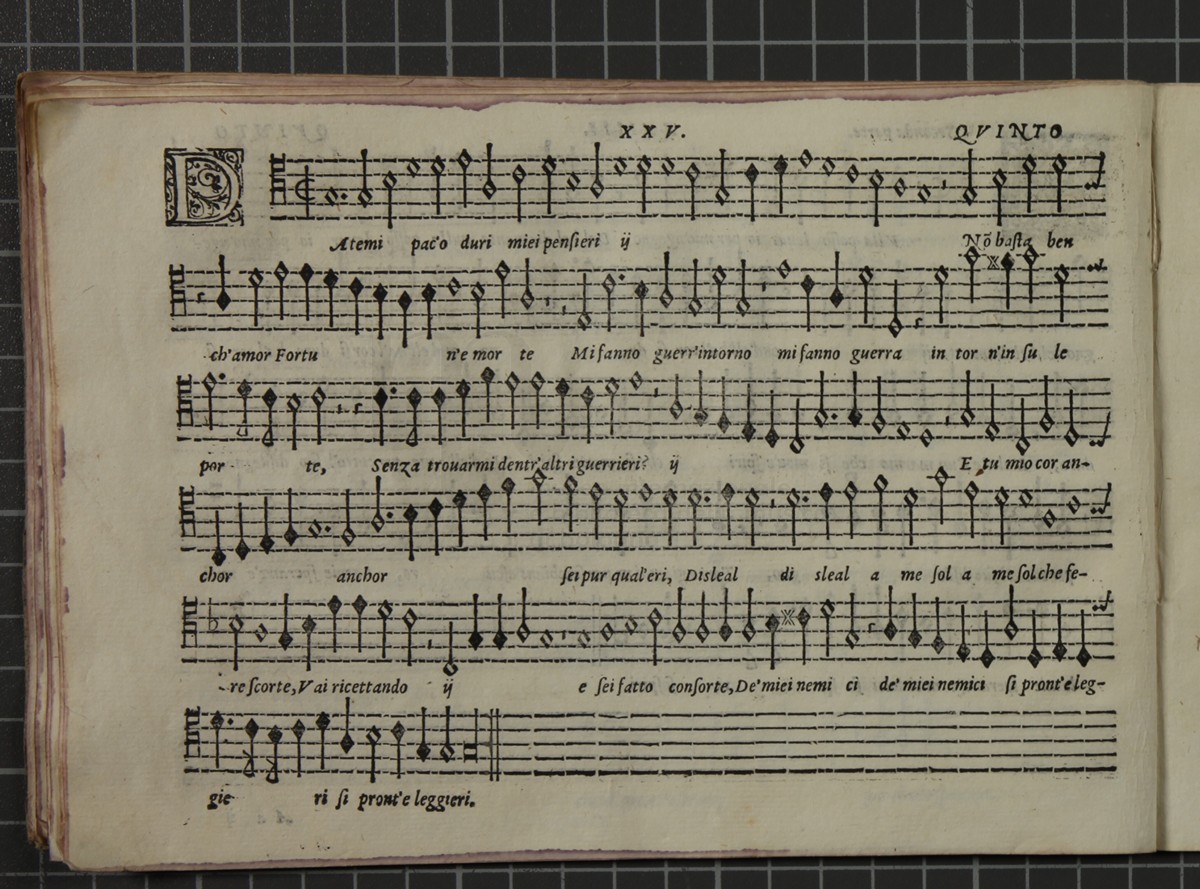 XXV. QVINTO
DAtemi pac'o duri miei pensieri ij Nō basta ben
ch'amor Fortu n'e mor te Mi fanno guerr'intorno mi fanno guerra in tor n'in su le
por te, Senza trouarmi dentr'altri guerrieri? ij E tu mio cor an-
chor anchor sei pur qual'eri, Disleal di sleal a me sol a me sol che fe-
re scorte, Vai ricettando ij e sei fatto consorte, De'miei nemi ci de' miei nemici si pront'e leg-
gie ri si pront'e leggieri.